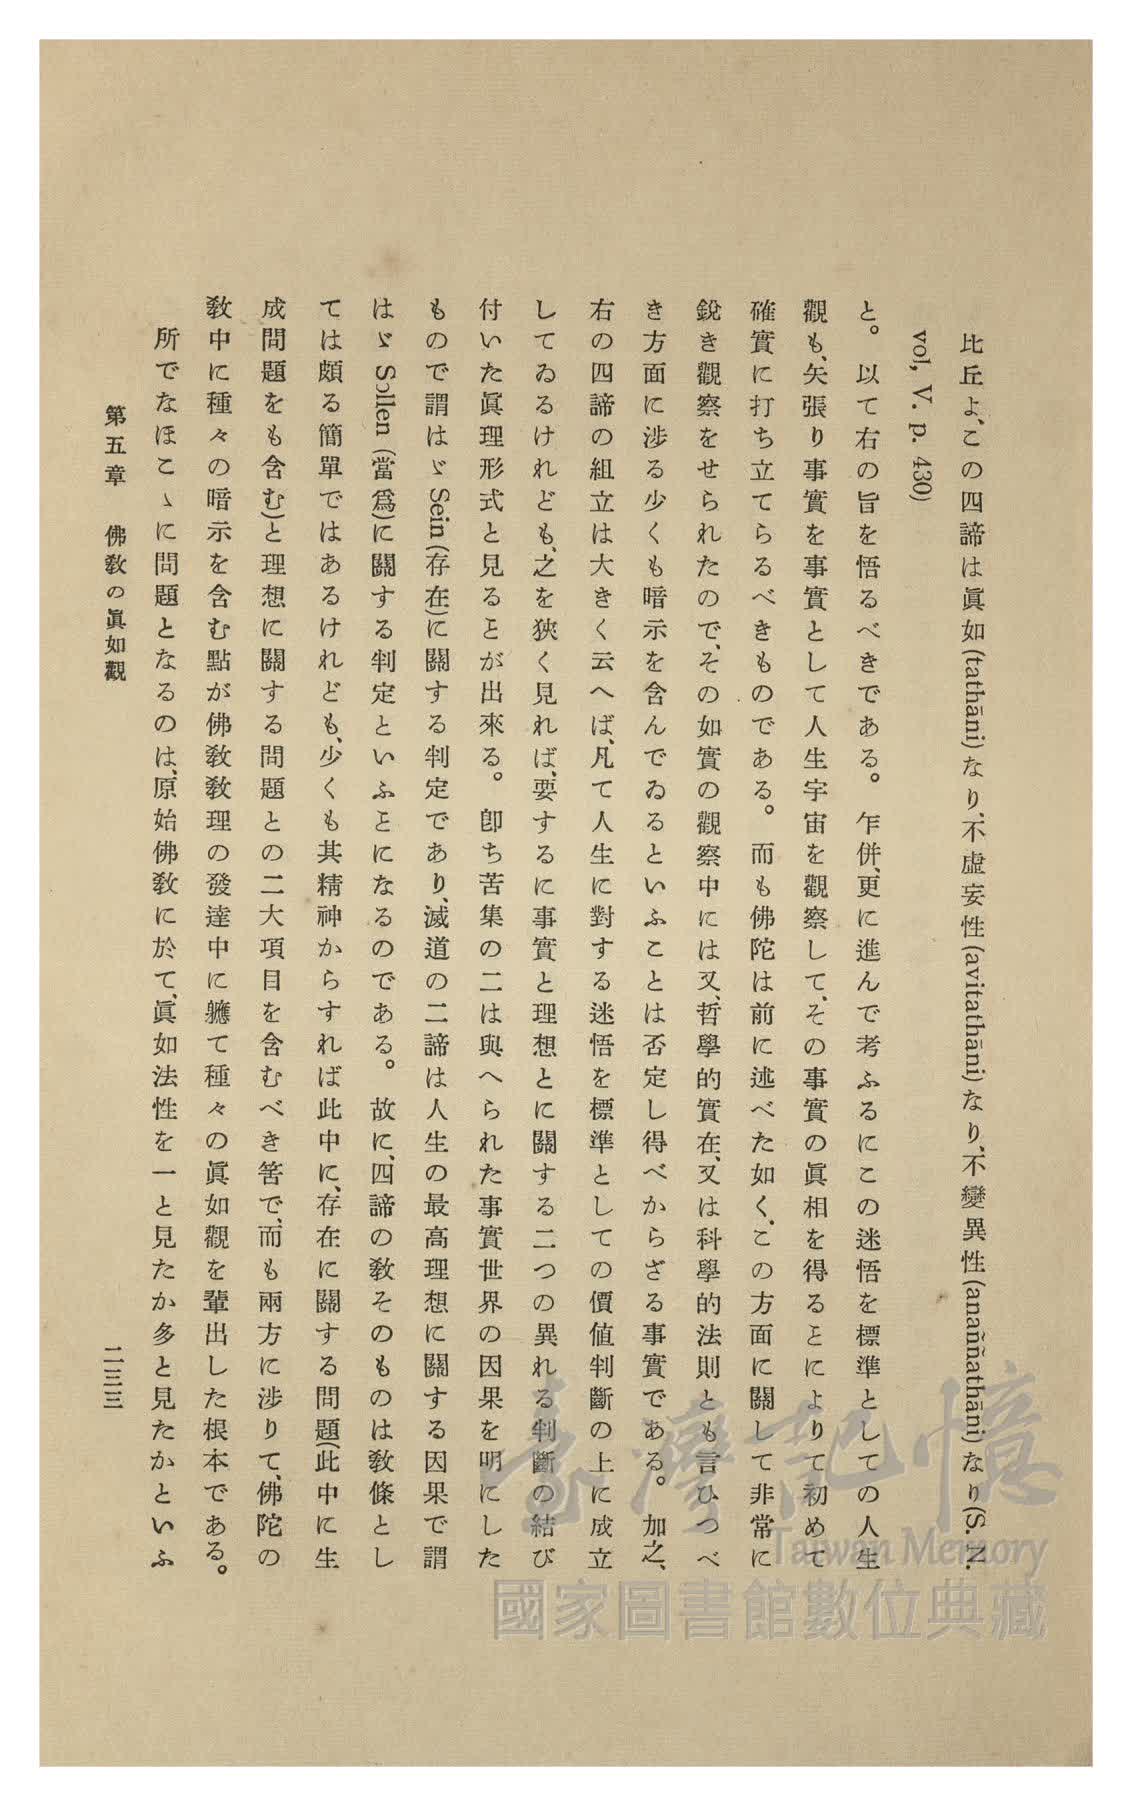 比丘よ、この四諦は眞如(tathāni)なり、不虛妄性(avitathāni)なり、不變異性(anaññathāni)なり(S. N.
vol, V. p. 430)
と。以て右の旨を悟るべきである。乍併、更に進んで考ふるにこの迷悟を標準としての人生
觀も、矢張り事實を事實として人生宇宙を觀察して、その事實の眞相を得るヿによりて初めて
確實に打ち立てらるべきものである。而も佛陀は前に述べた如く、この方面に關して非常に
銳き觀察をせられたので、その如實の觀察中には又、哲學的實在、又は科學的法則とも言ひつべ
き方面に涉る少くも暗示を含んでゐるといふことは否定し得べからざる事實である。加之、
右の四諦の組立は大きく云へば、凡て人生に對する迷悟を標準としての價値判斷の上に成立
してゐるけれども、之を狹く見れば、要するに事實と理想とに關する二つの異れる判斷の結び
付いた眞理形式と見るヿが出來る。卽ち苦集の二は與へられた事實世界の因果を明にした
もので謂はゞ Sein (存在)に關する判定であり、滅道の二諦は人生の最高理想に關する因果で謂
はゞ Sollen (當爲)に關する判定といふヿになるのである。故に、四諦の敎そのものは敎條とし
ては頗る簡單ではあるけれども、少くも其精神からすれば此中に、存在に關する問題(此中に生
成問題をも含む)と理想に關する問題との二大項目を含むべき筈で、而も兩方に涉りて、佛陀の
敎中に種々の暗示を含む點が佛敎敎理の發達中に軈て種々の眞如觀を輩出した根本である。
所でなほこゝに問題となるのは、原始佛敎に於て、眞如法性を一と見たか多と見たかといふ
第五章 佛敎の眞如觀
二三三
臺灣記憶
Taiwan Memory
國家圖書館數位典藏